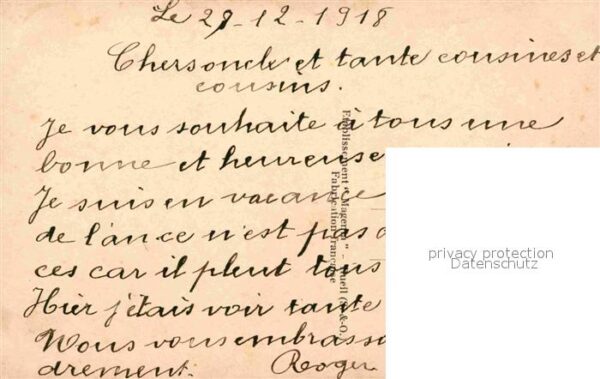 Le 29-12-1918
Chersoncle et tante cousines et
cousins.
Je vous souhaite à tous une
bonne et heureuse
Je suis en vacance
de l'an ce n'est pas
ces car il pleut tous
Hier j'étais voir tante
Nous vous embrass
drement. Roger
Etablissement " Magenta " –
Fabrication française
privacy protection
Datenschutz